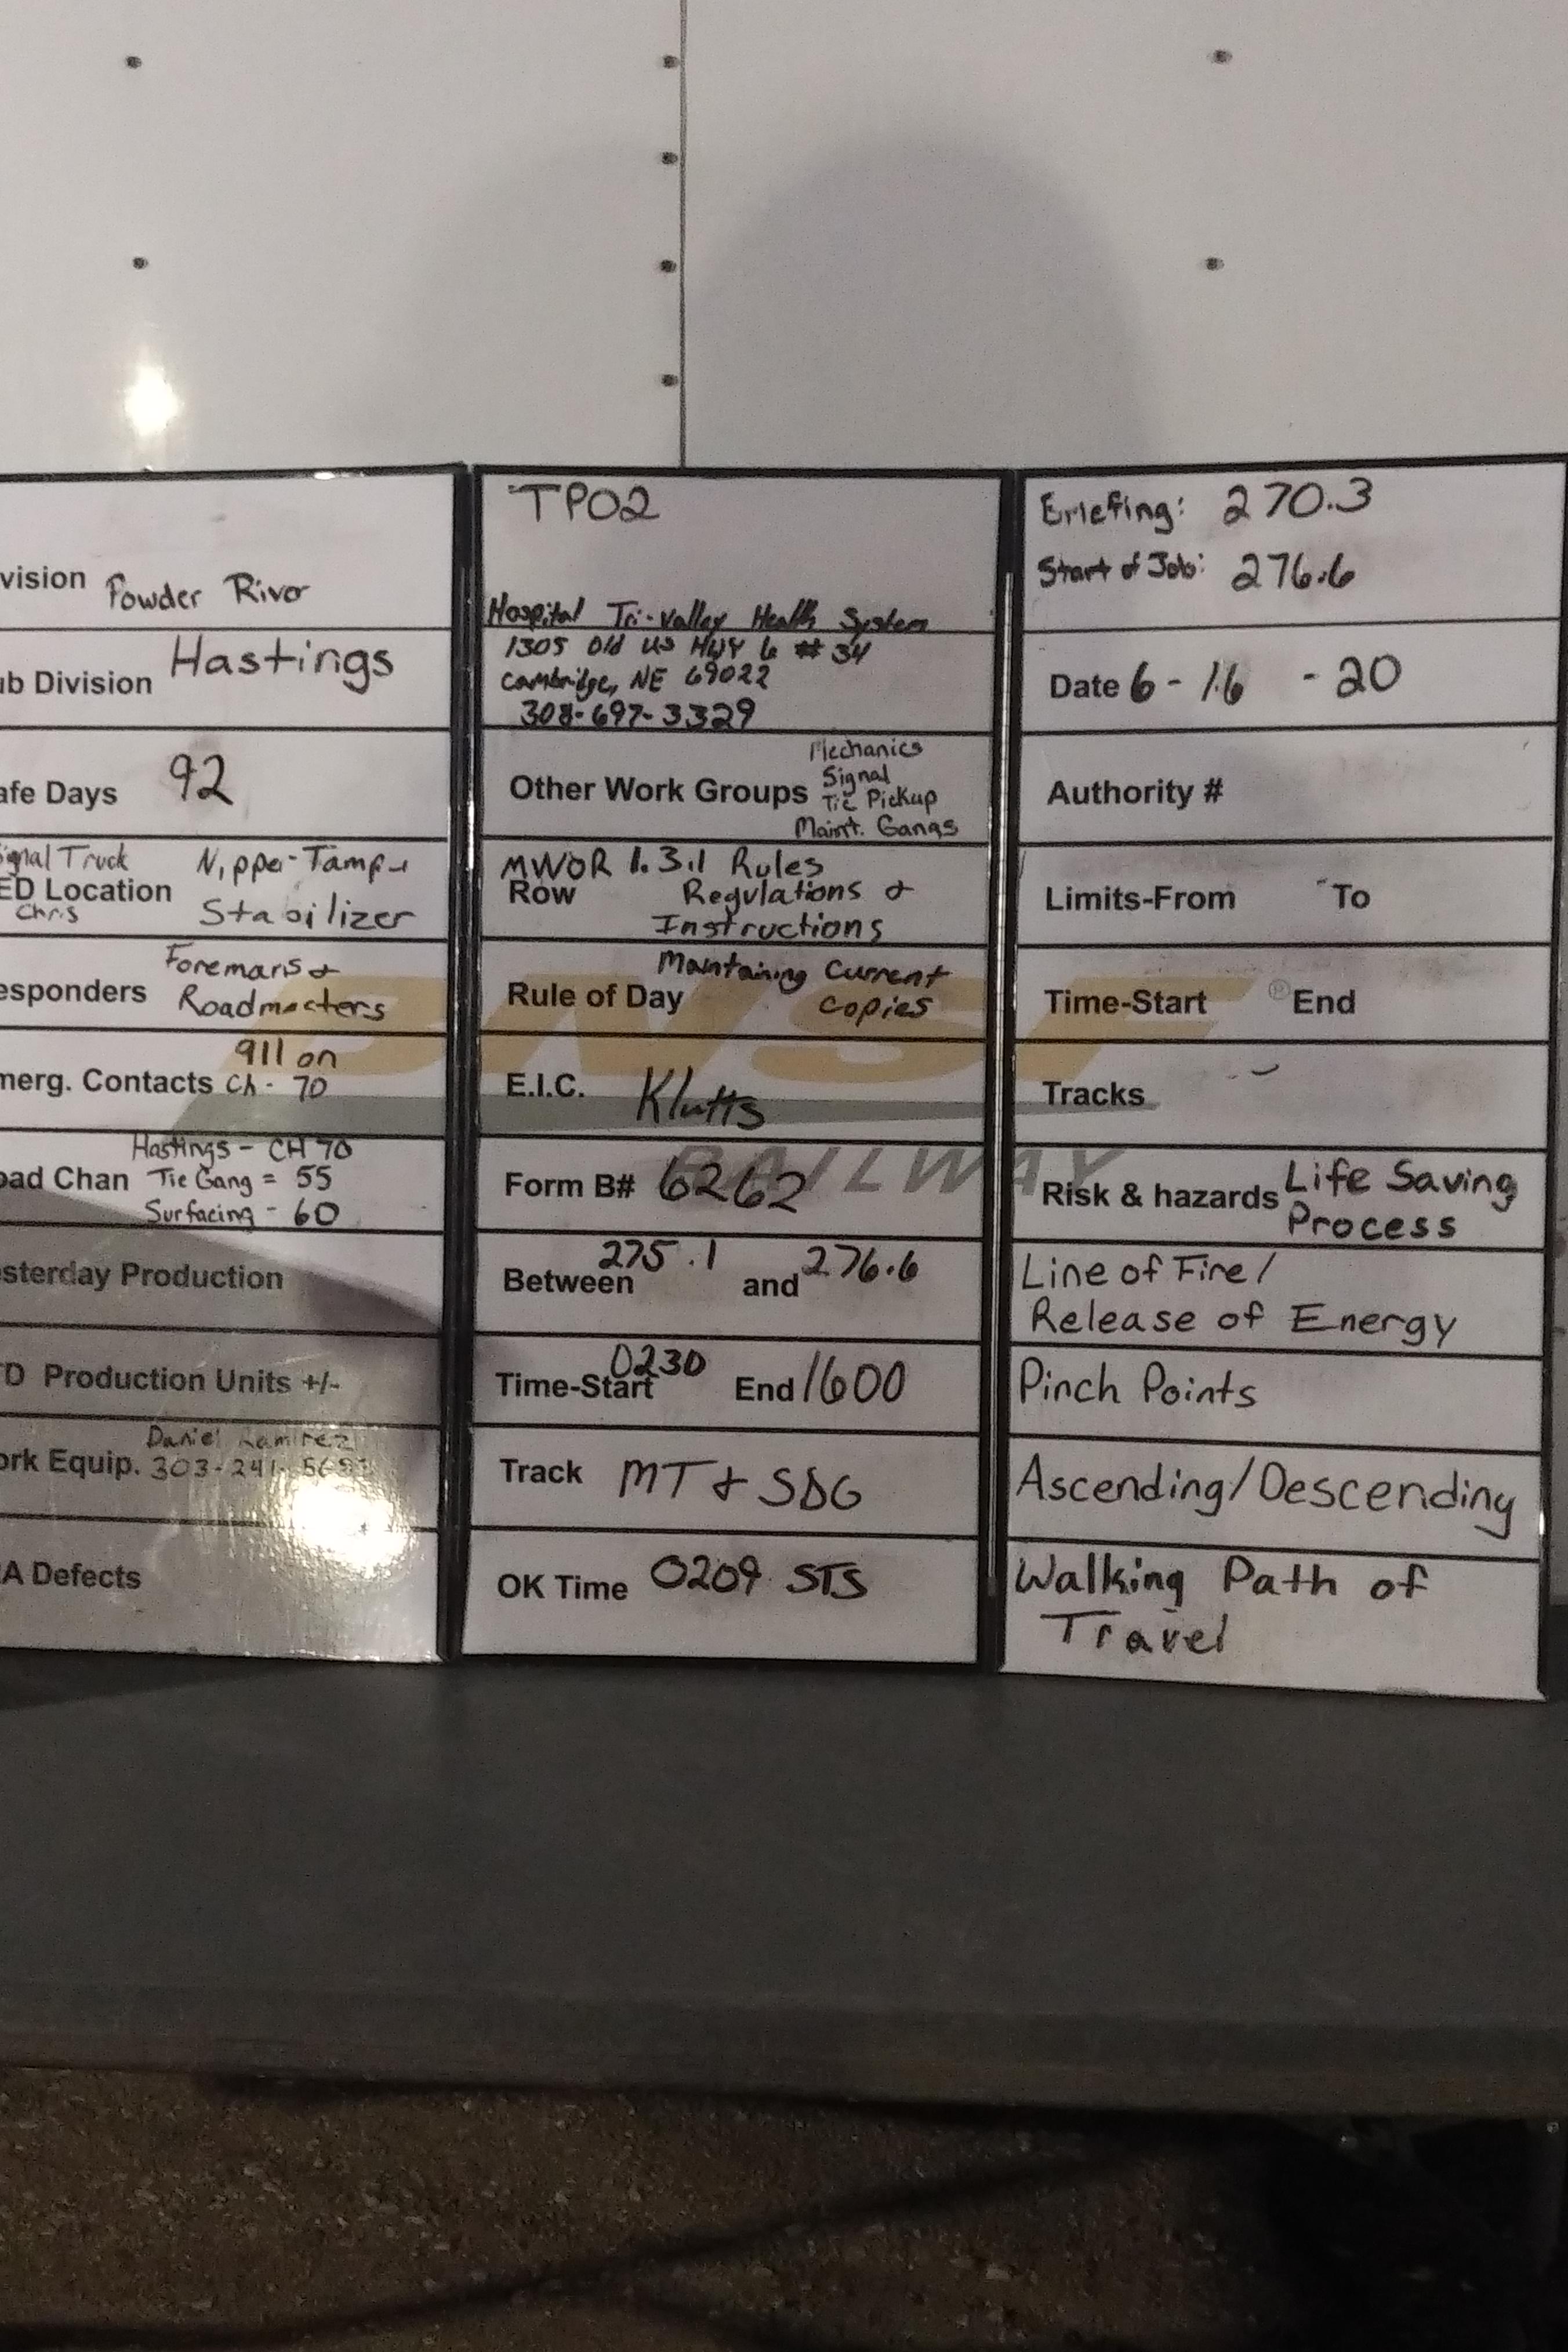 vision Powder River
ub Division Hastings
afe Days 92
ignal Truck Nipper-Tamper
ED Location
Chris Stabilizer
esponders Foremans &
Roadmasters
911 on
merg. Contacts Ch- 70
Hastings - CH 70
oad Chan Tie Gang = 55
Surfacing - 60
esterday Production
TD Production Units +/-
Daniel Ramirez
ork Equip. 303-241-
RA Defects
TP02
Hospital Tri-Valley Health System
1305 Old US HWY 6 # 34
Cambridge, NE 69022
308-697-3329
Other Work Groups Mechanics
Signal
Tie Pickup
Maint. Gangs
MWOR 1.3.1 Rules
Row Regulations &
Instructions
Rule of Day Maintaining Current
copies
E.I.C. Klutts
Form B# 6262
Between 275.1 and 276.6
Time-Start 0230 End 1600
Track MT & SDG
OK Time 0209 STS
Briefing: 270.3
Start of Job: 276.6
Date 6-16 -20
Authority #
Limits-From To
Time-Start End
Tracks
Risk & hazards Life Saving
Process
Line of Fire/
Release of Energy
Pinch Points
Ascending/Descending
Walking Path of
Travel
BNSF ®
RAILWAY